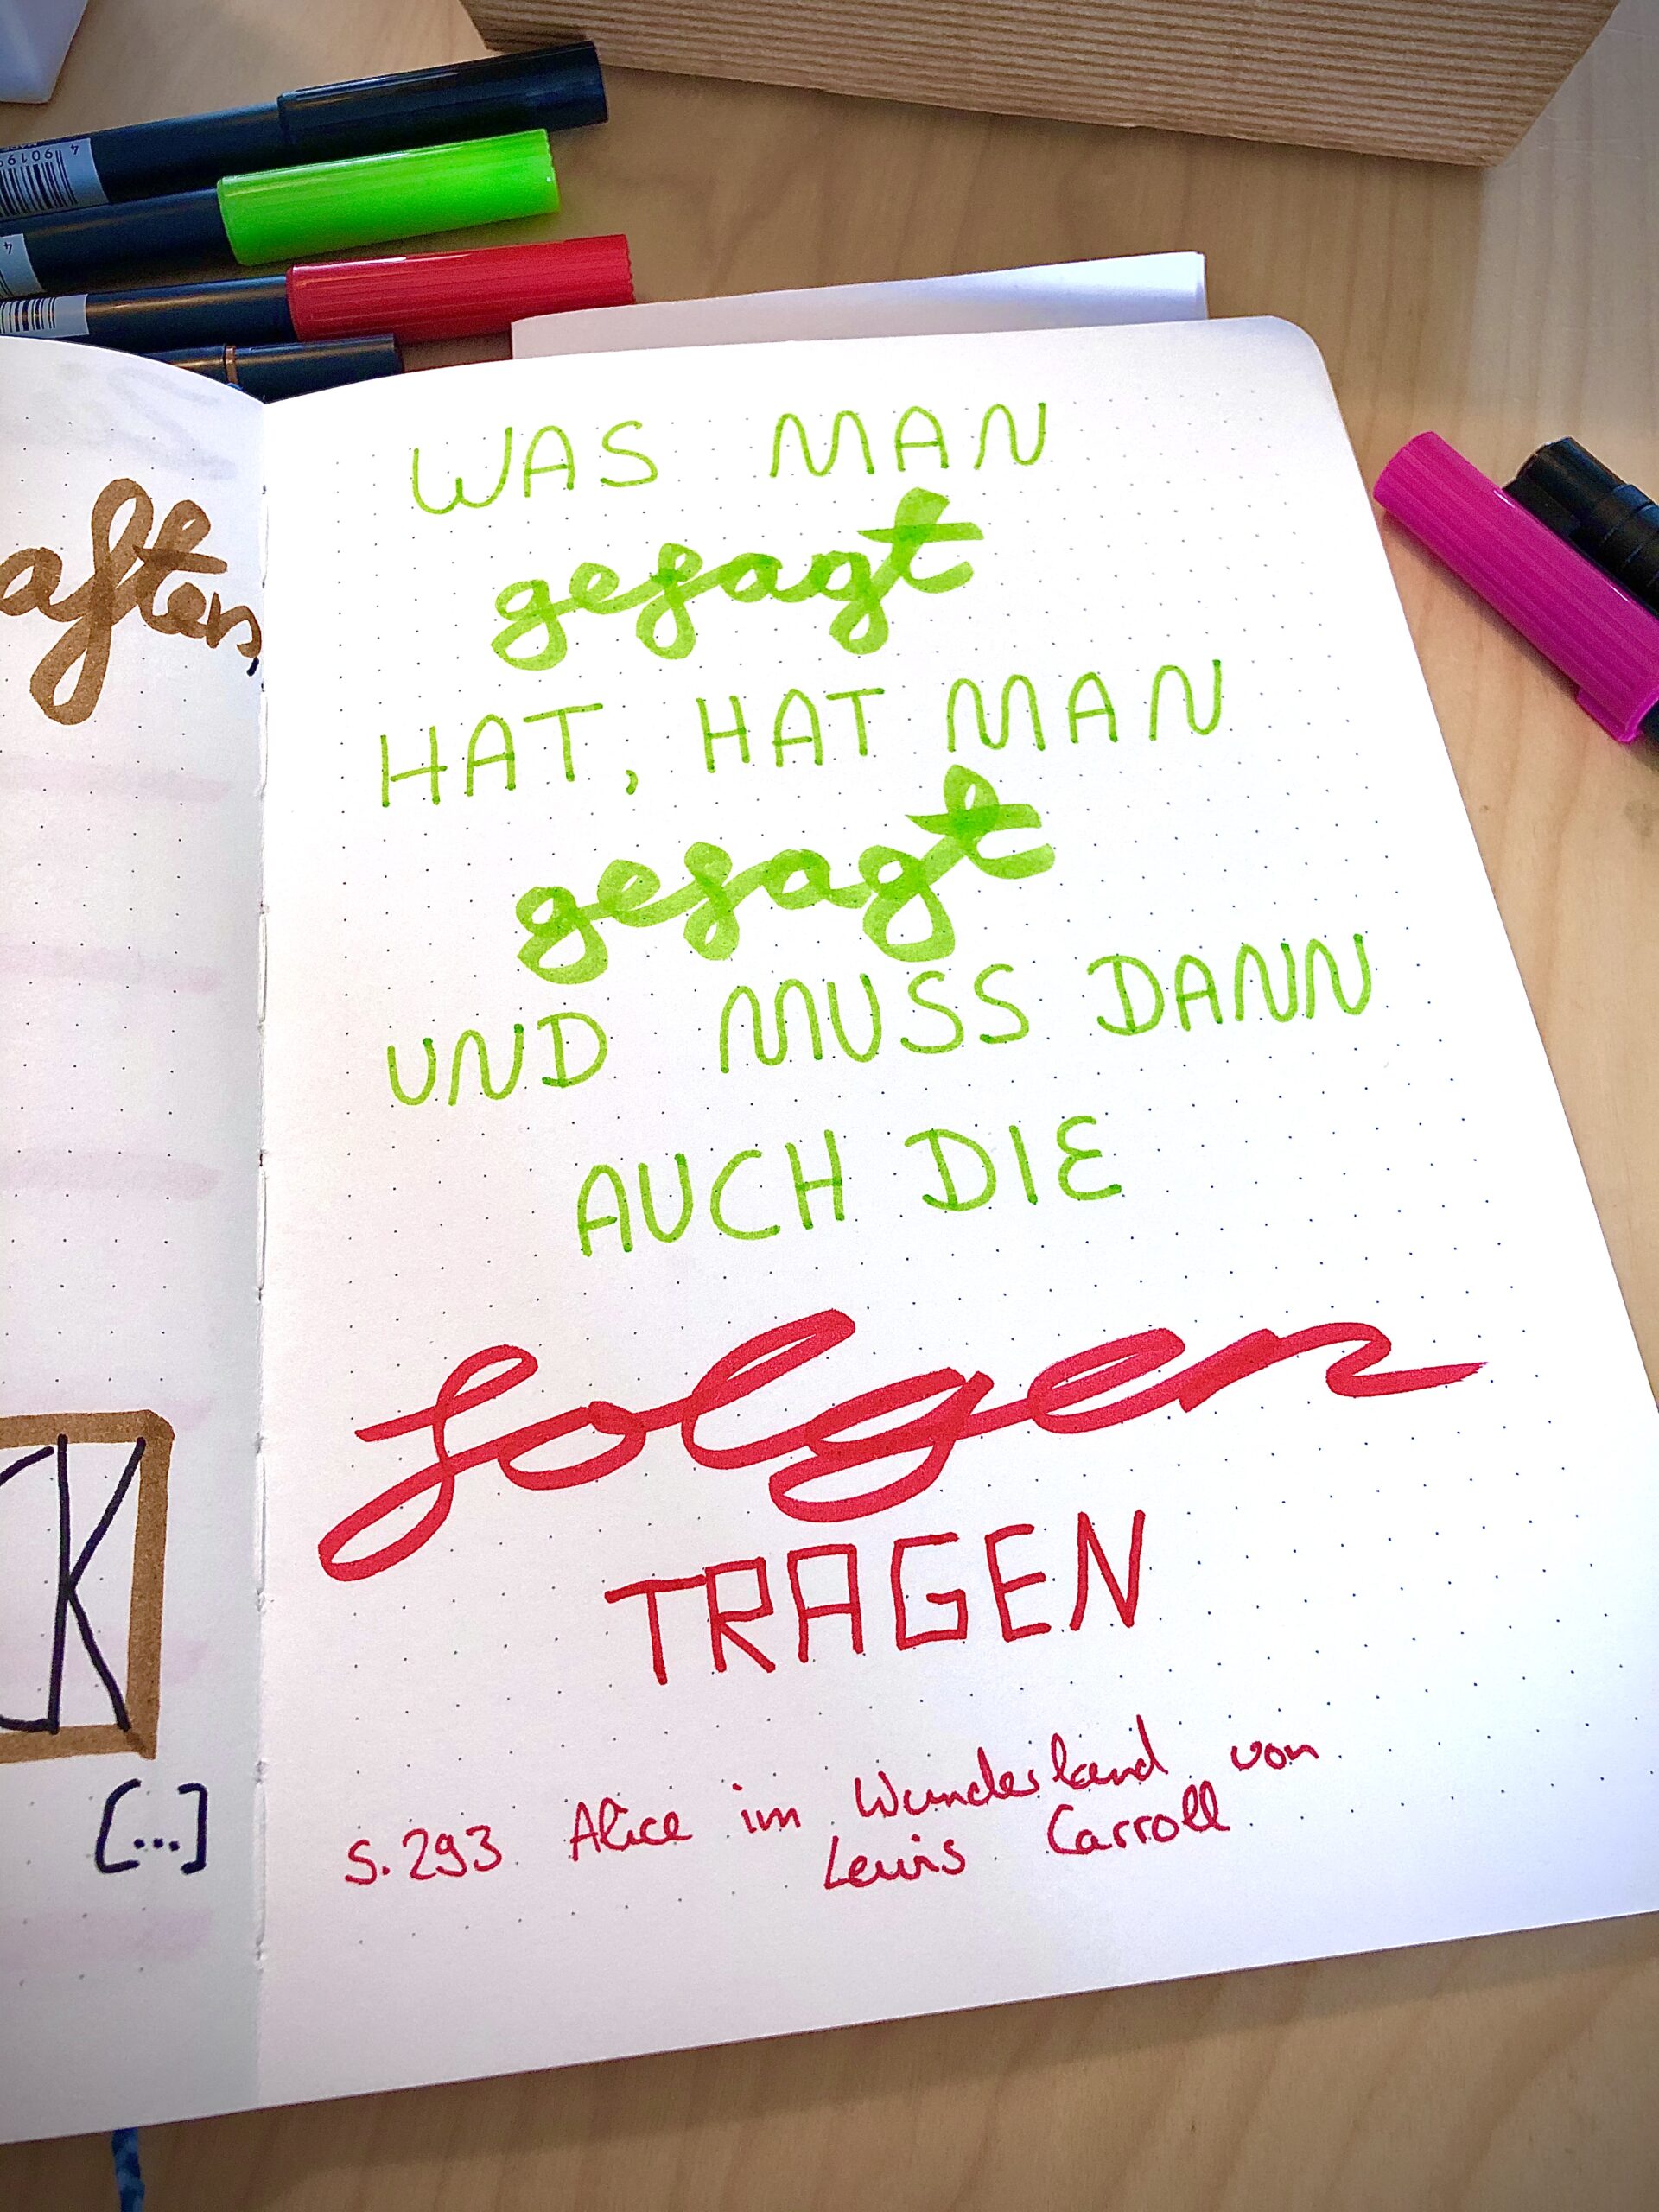 WAS MAN
gesagt
HAT, HAT MAN
gesagt
UND MUSS DANN
AUCH DIE
folgen
TRAGEN
S. 293 Alice im Wunderland von
Lewis Carroll
aften,
K
[...]